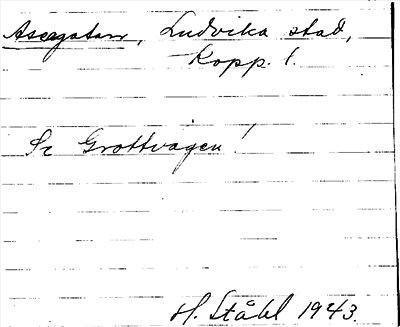 Asergatan, Ludvika stad,
Kopp. l.
Se Grottvägen!
H. Ståhl 1943.